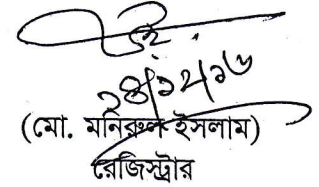 ২৪/১২/১৬
(মো. মনিরুল ইসলাম)
রেজিস্ট্রার